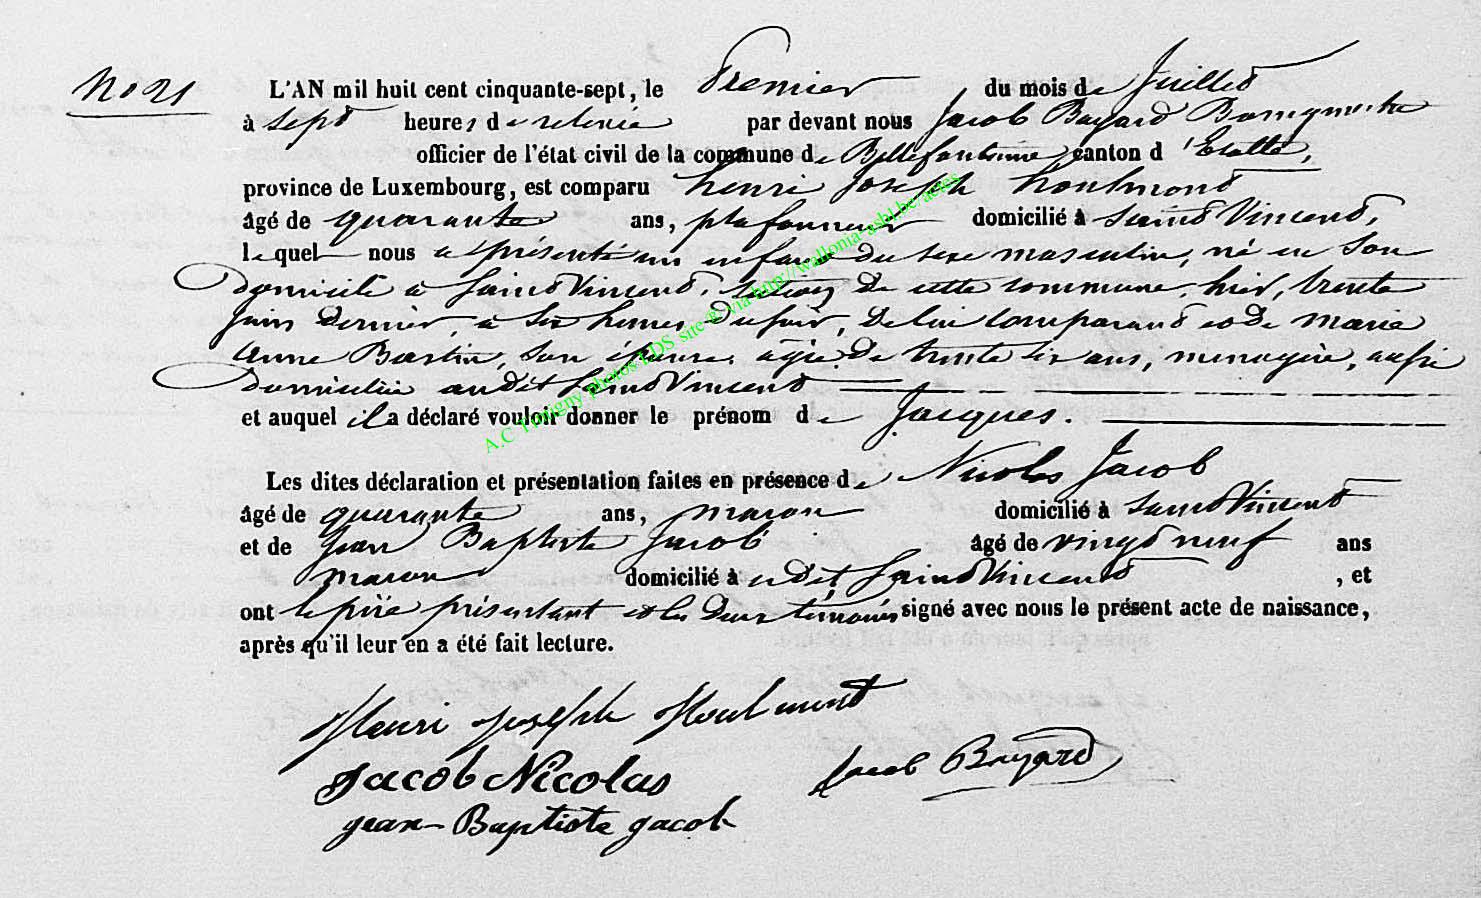 No 21
L'AN mil huit cent cinquante-sept, le Premier du mois de Juillet
à sept heures de relevée par devant nous Jacob Bayard Bourgmestre
officier de l'état civil de la commune de Bellefontaine canton d'Etalle,
province de Luxembourg, est comparu henri Joseph houlmont
âgé de quarante ans, plafonneur domicilié à Saint Vincent,
lequel nous a présenté un enfant du sexe masculin, né en son
domicile à Saint Vincent, section de cette commune, hier, trente
juin dernier, à six heures du soir, de lui comparant et de marie
Anne Bastin, son épouse, agée de trente six ans, menagère, aussi
domiciliée audit Saint Vincent
et auquel il a déclaré vouloir donner le prénom de Jacques.
Les dites déclaration et présentation faites en présence de Nicolas Jacob
âgé de quarante ans, maçon domicilié à Saint Vincent
et de Jean Baptiste Jacob âgé de vingt neuf ans
maçon domicilié à udit Saint Vincent , et
ont le père présentant et les deux témoins signé avec nous le présent acte de naissance,
après qu'il leur en a été fait lecture.
Henri joseph Houlmont
Jacob Nicolas Jacob Bayard
jean-Baptiste jacob
A.C Tintigny photos LDS site @ via http://wallonia-asbl.be/actes